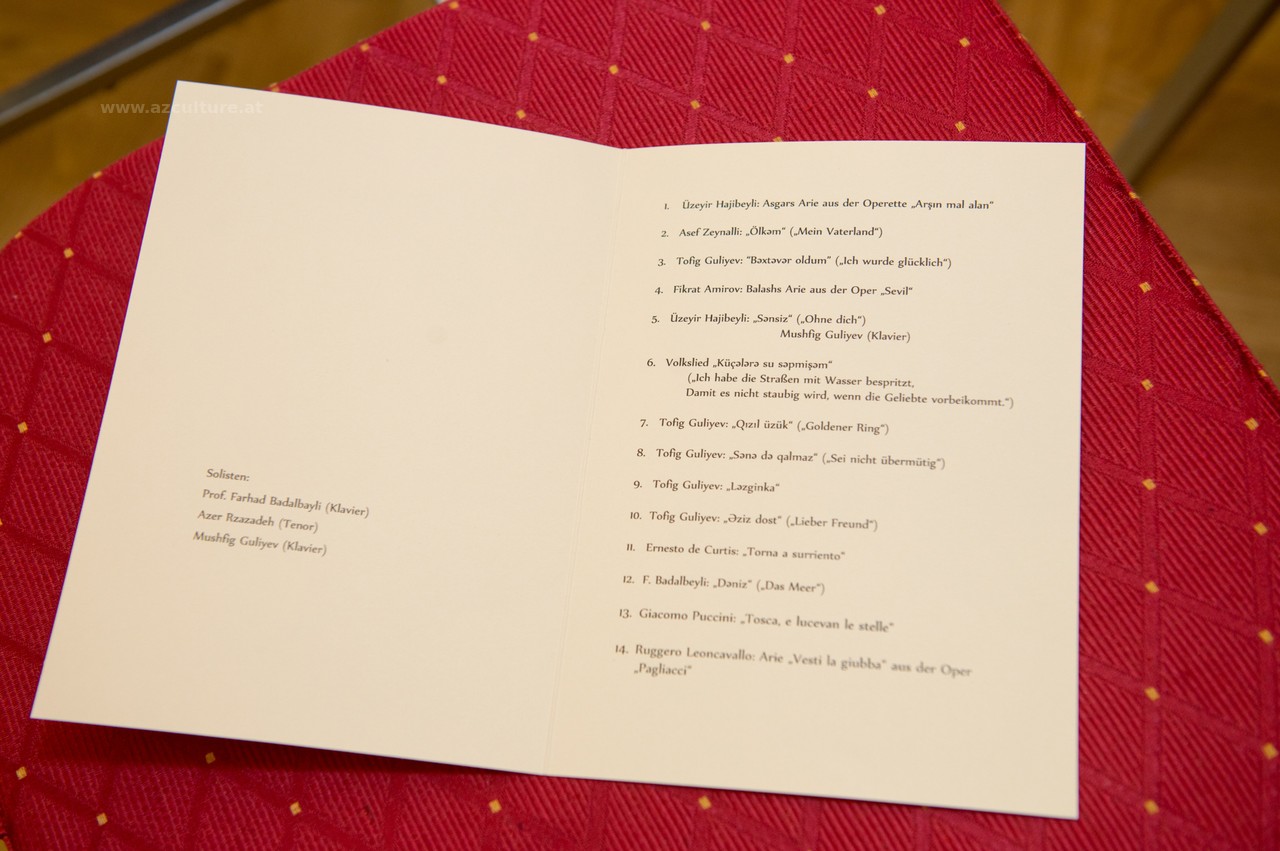 www.azculture.at
Solisten:
Prof. Farhad Badalbayli (Klavier)
Azer Rzazadeh (Tenor)
Mushfig Guliyev (Klavier)
1. Üzeyir Hajibeyli: Asgars Arie aus der Operette „Arşın mal alan“
2. Asef Zeynalli: „Ölkəm“ („Mein Vaterland“)
3. Tofig Guliyev: “Bəxtəvər oldum“ („Ich wurde glücklich“)
4. Fikrat Amirov: Balashs Arie aus der Oper „Sevil“
5. Üzeyir Hajibeyli: „Sənsiz“ („Ohne dich“)
Mushfig Guliyev (Klavier)
6. Volkslied „Küçələrə su səpmişəm“
(„Ich habe die Straßen mit Wasser bespritzt,
Damit es nicht staubig wird, wenn die Geliebte vorbeikommt.“)
7. Tofig Guliyev: „Qızıl üzük“ („Goldener Ring“)
8. Tofig Guliyev: „Sənə də qalmaz“ („Sei nicht übermütig“)
9. Tofig Guliyev: „Ləzginka“
10. Tofig Guliyev: „Əziz dost“ („Lieber Freund“)
11. Ernesto de Curtis: „Torna a surriento“
12. F. Badalbeyli: „Dəniz“ („Das Meer“)
13. Giacomo Puccini: „Tosca, e lucevan le stelle“
14. Ruggero Leoncavallo: Arie „Vesti la giubba“ aus der Oper
„Pagliacci“